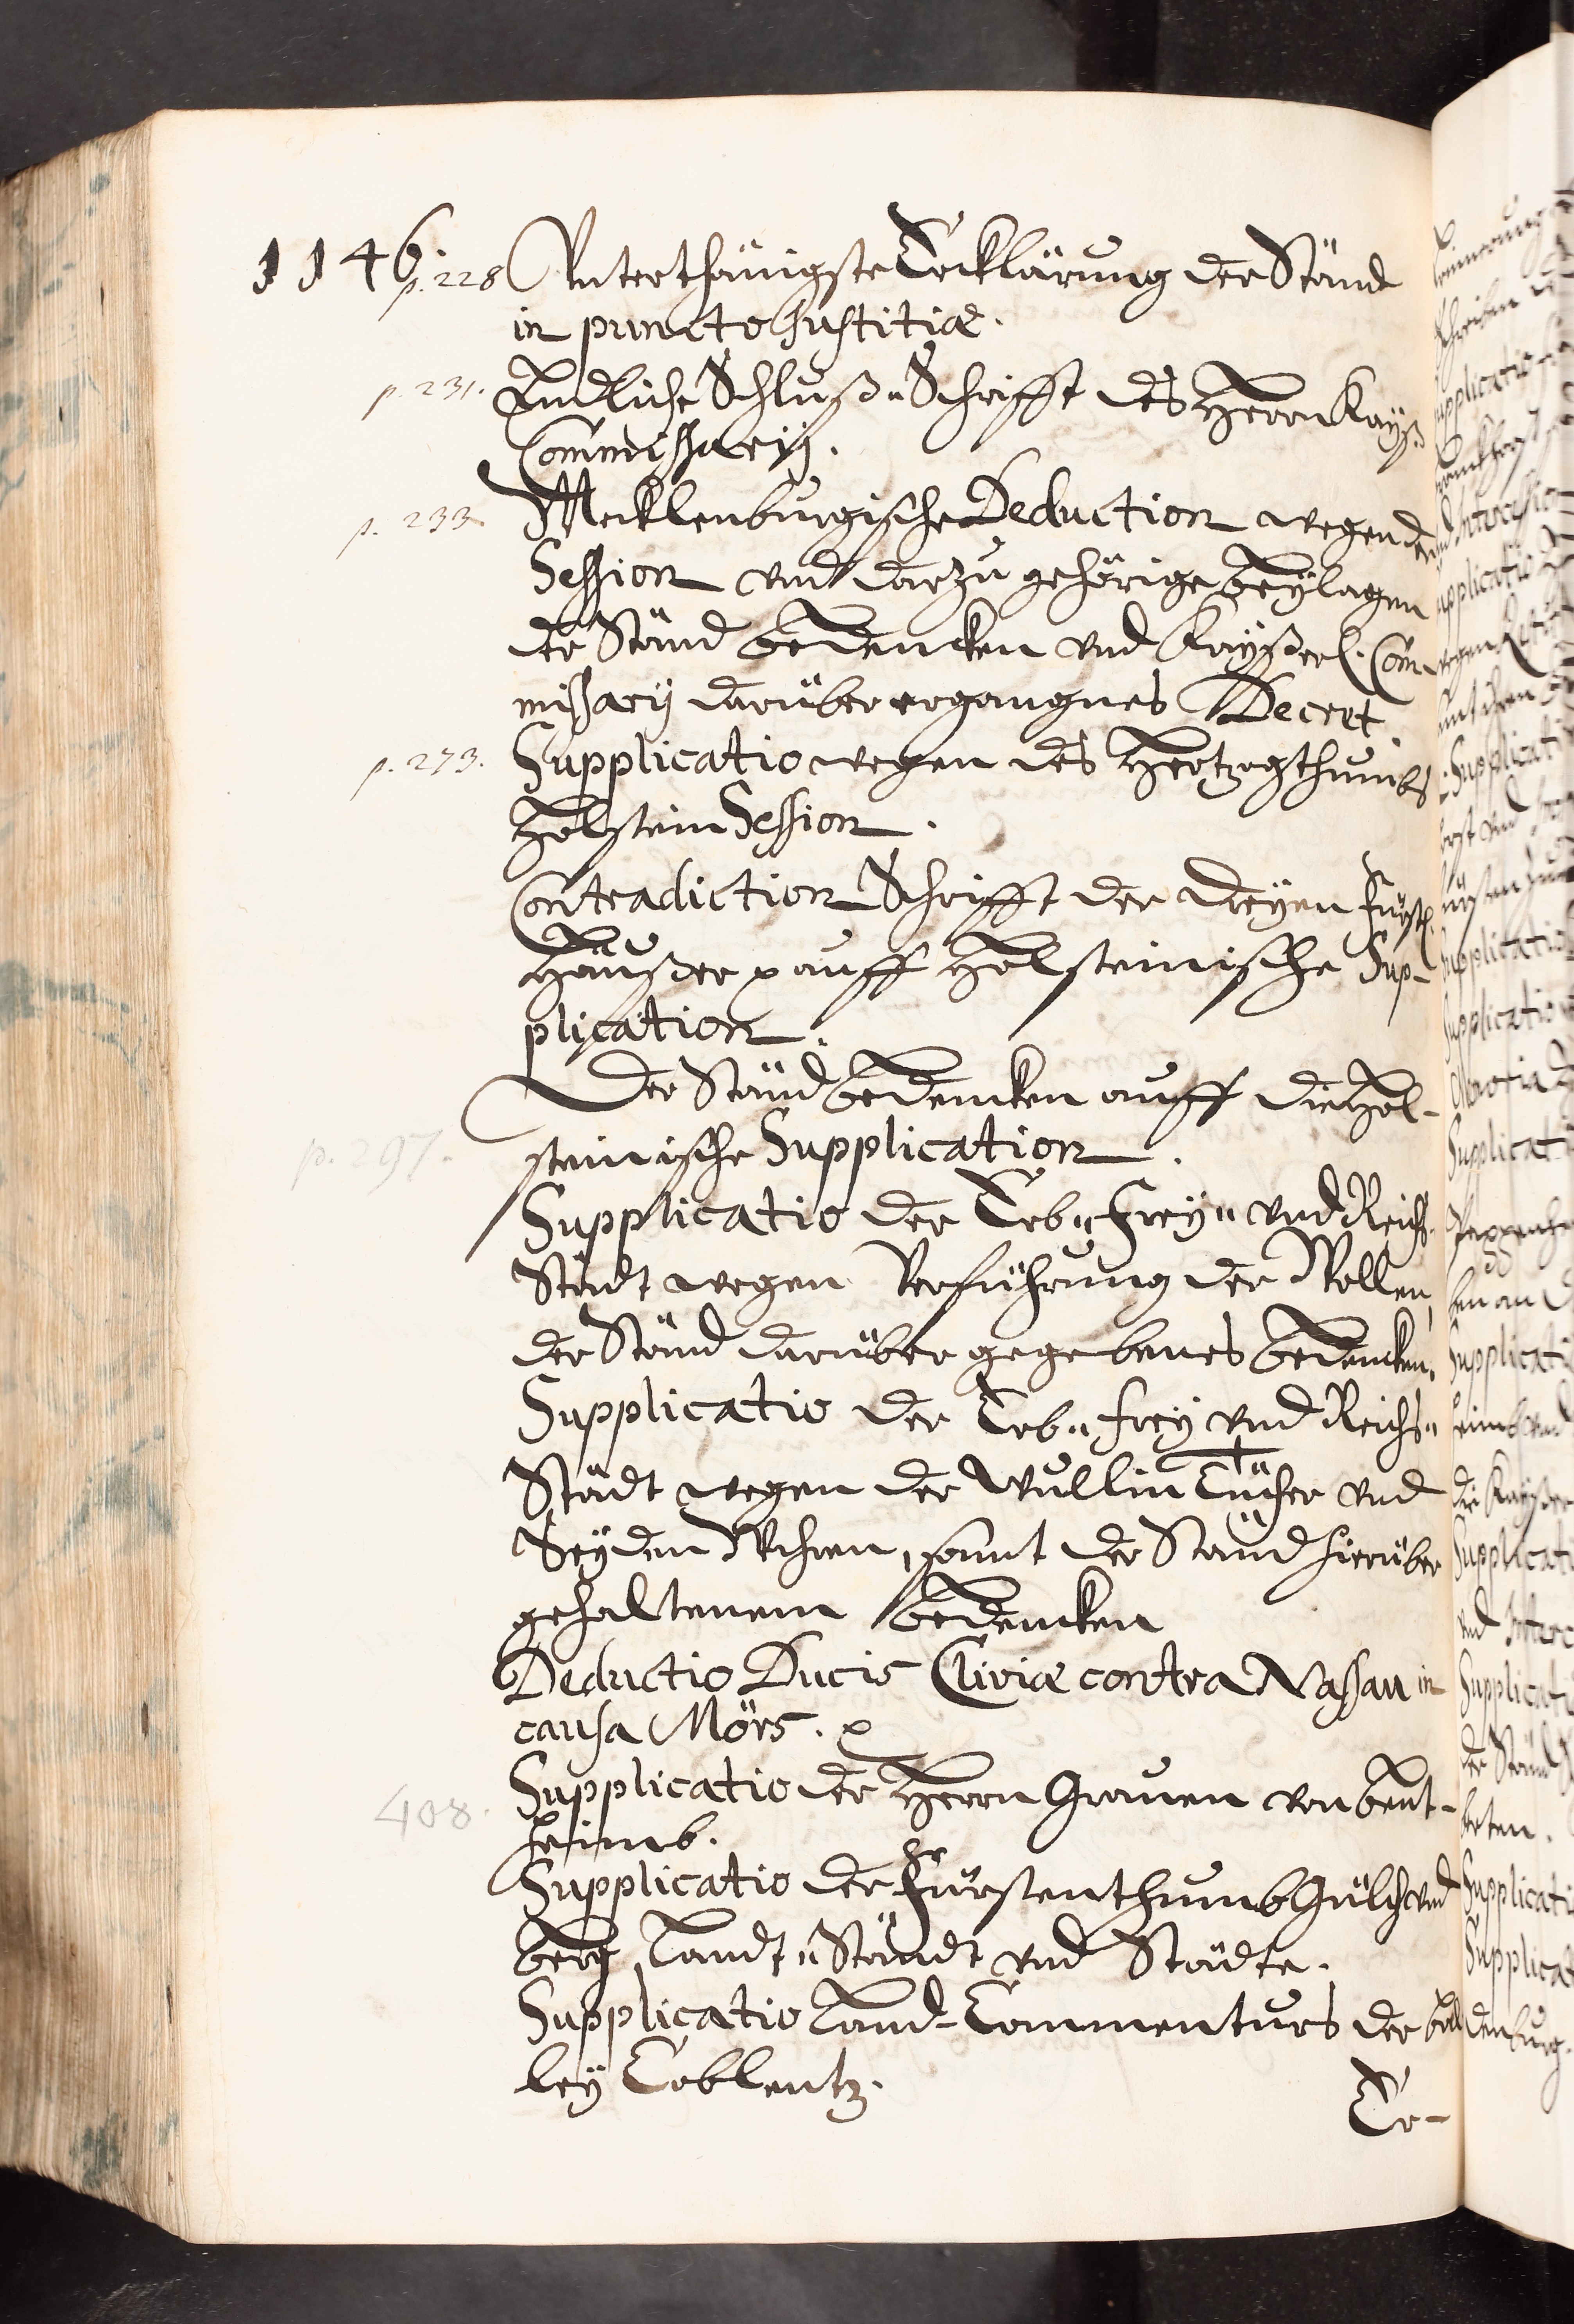 1146. p. 228 Vnterthänigste Erklärung der Ständ
in puncto Justitiæ.
p. 231. Endliche Schluß- Schrifft des Herrn Kayß.
Commissarij.
p. 233. Mecklenburgische Deduction wegen der
Session vnd darzu gehörige beylagen
der Ständ bedencken vnd Kayßerl. Com-
missarij darüber ergangnes Decret.
p. 273. Supplicatio wegen des Hertzogthumbs
Holstein Session.
Contradiction Schrifft der dreyen Fürstl.
Häußer auff Holsteinische Sup-
plication.
Der Ständ bedencken auff die Hol-
p. 297. steinische Supplication.
Supplicatio der Erb- Frey- vnd Reichs-
Städt wegen Verführung der Wollen,
der Ständ darüber gegebenes bedencken.
Supplicatio der Erb- frey vnd Reichs-
Städt wegen der Wullin Tücher vnd
Seyden Wahren, sambt der Ständ hierüber
gehaltenem bedencken
Deductio Ducis Cliviæ contra Nassau in
causa Mörs.
408. Supplicatio der Herrn Grauen von Bent-
heimb.
Supplicatio der Fürstenthumb Gülch vnd
Berg Landt- Ständt vnd Städte.
Supplicatio Land- Commenturs der Bal
ley Coblentz.
Er-